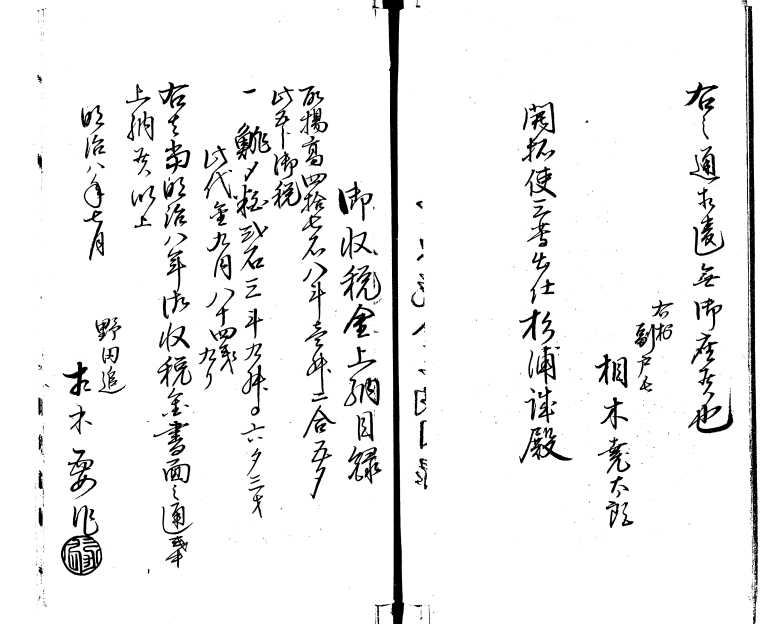 右之通相違無御座候也
右村
副戸長
相木堯太郎
開拓使三等出仕杉浦誠殿
御収税金上納目録
取揚高四拾七石八斗壱升二合五夕
此五分御税
一 鯡〆粕弐石三斗九升〇六夕三才
此代金九円八十四銭
右者当明治八年御収税金書面之通
上納候以上
明治八年七月
野田追